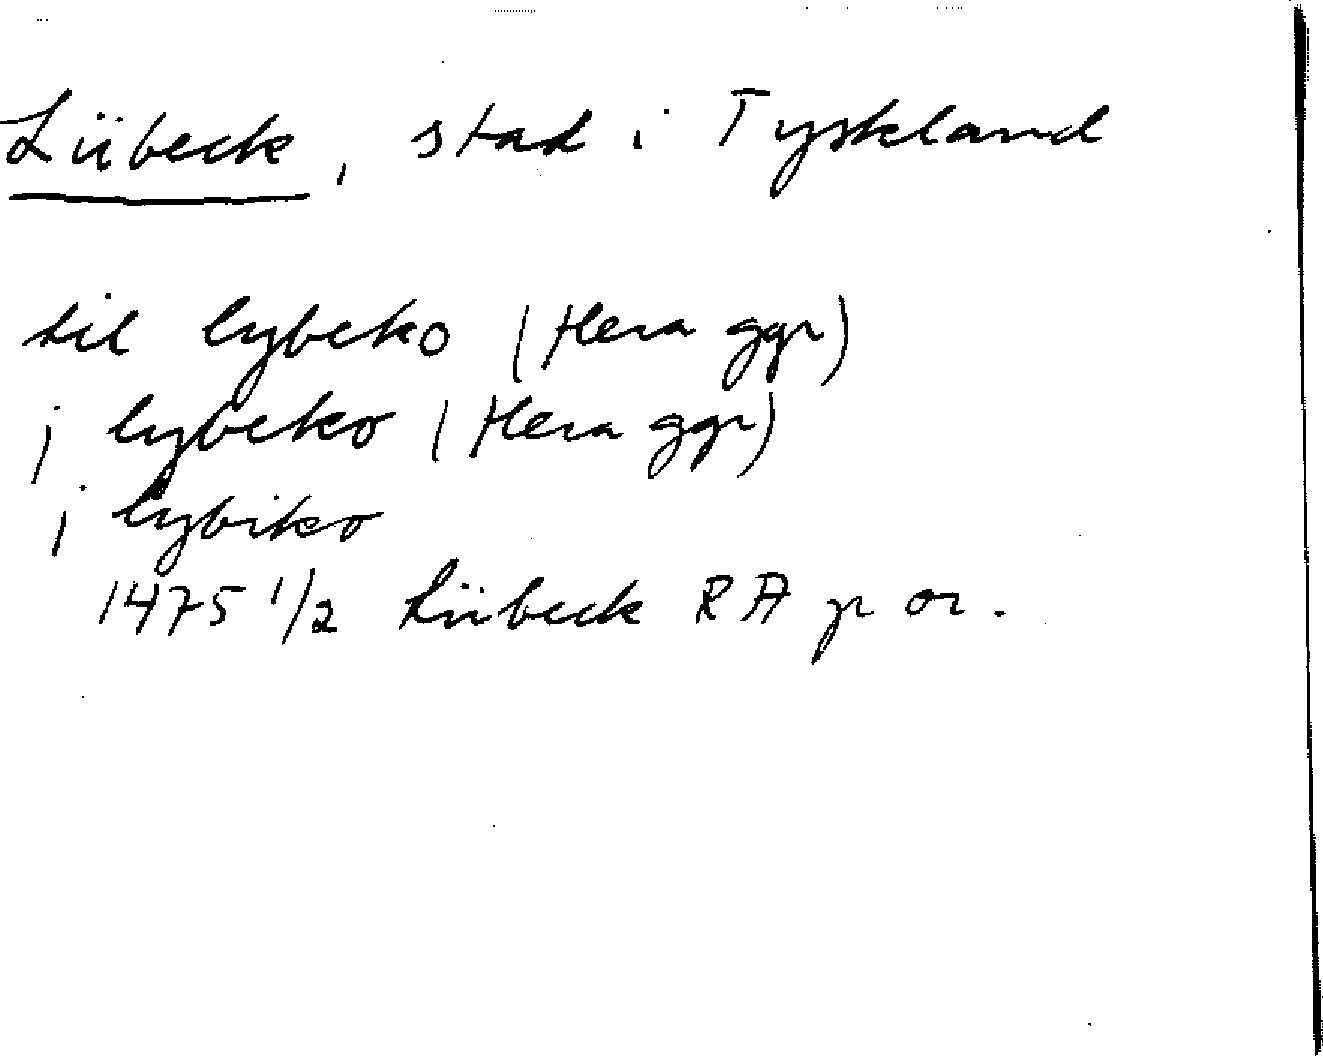 Lübeck, stad i Tyskland
til lybeko (flera ggr)
j lybeko (flera ggr)
j lybiko
1475 1/2 Lübeck RA p or.